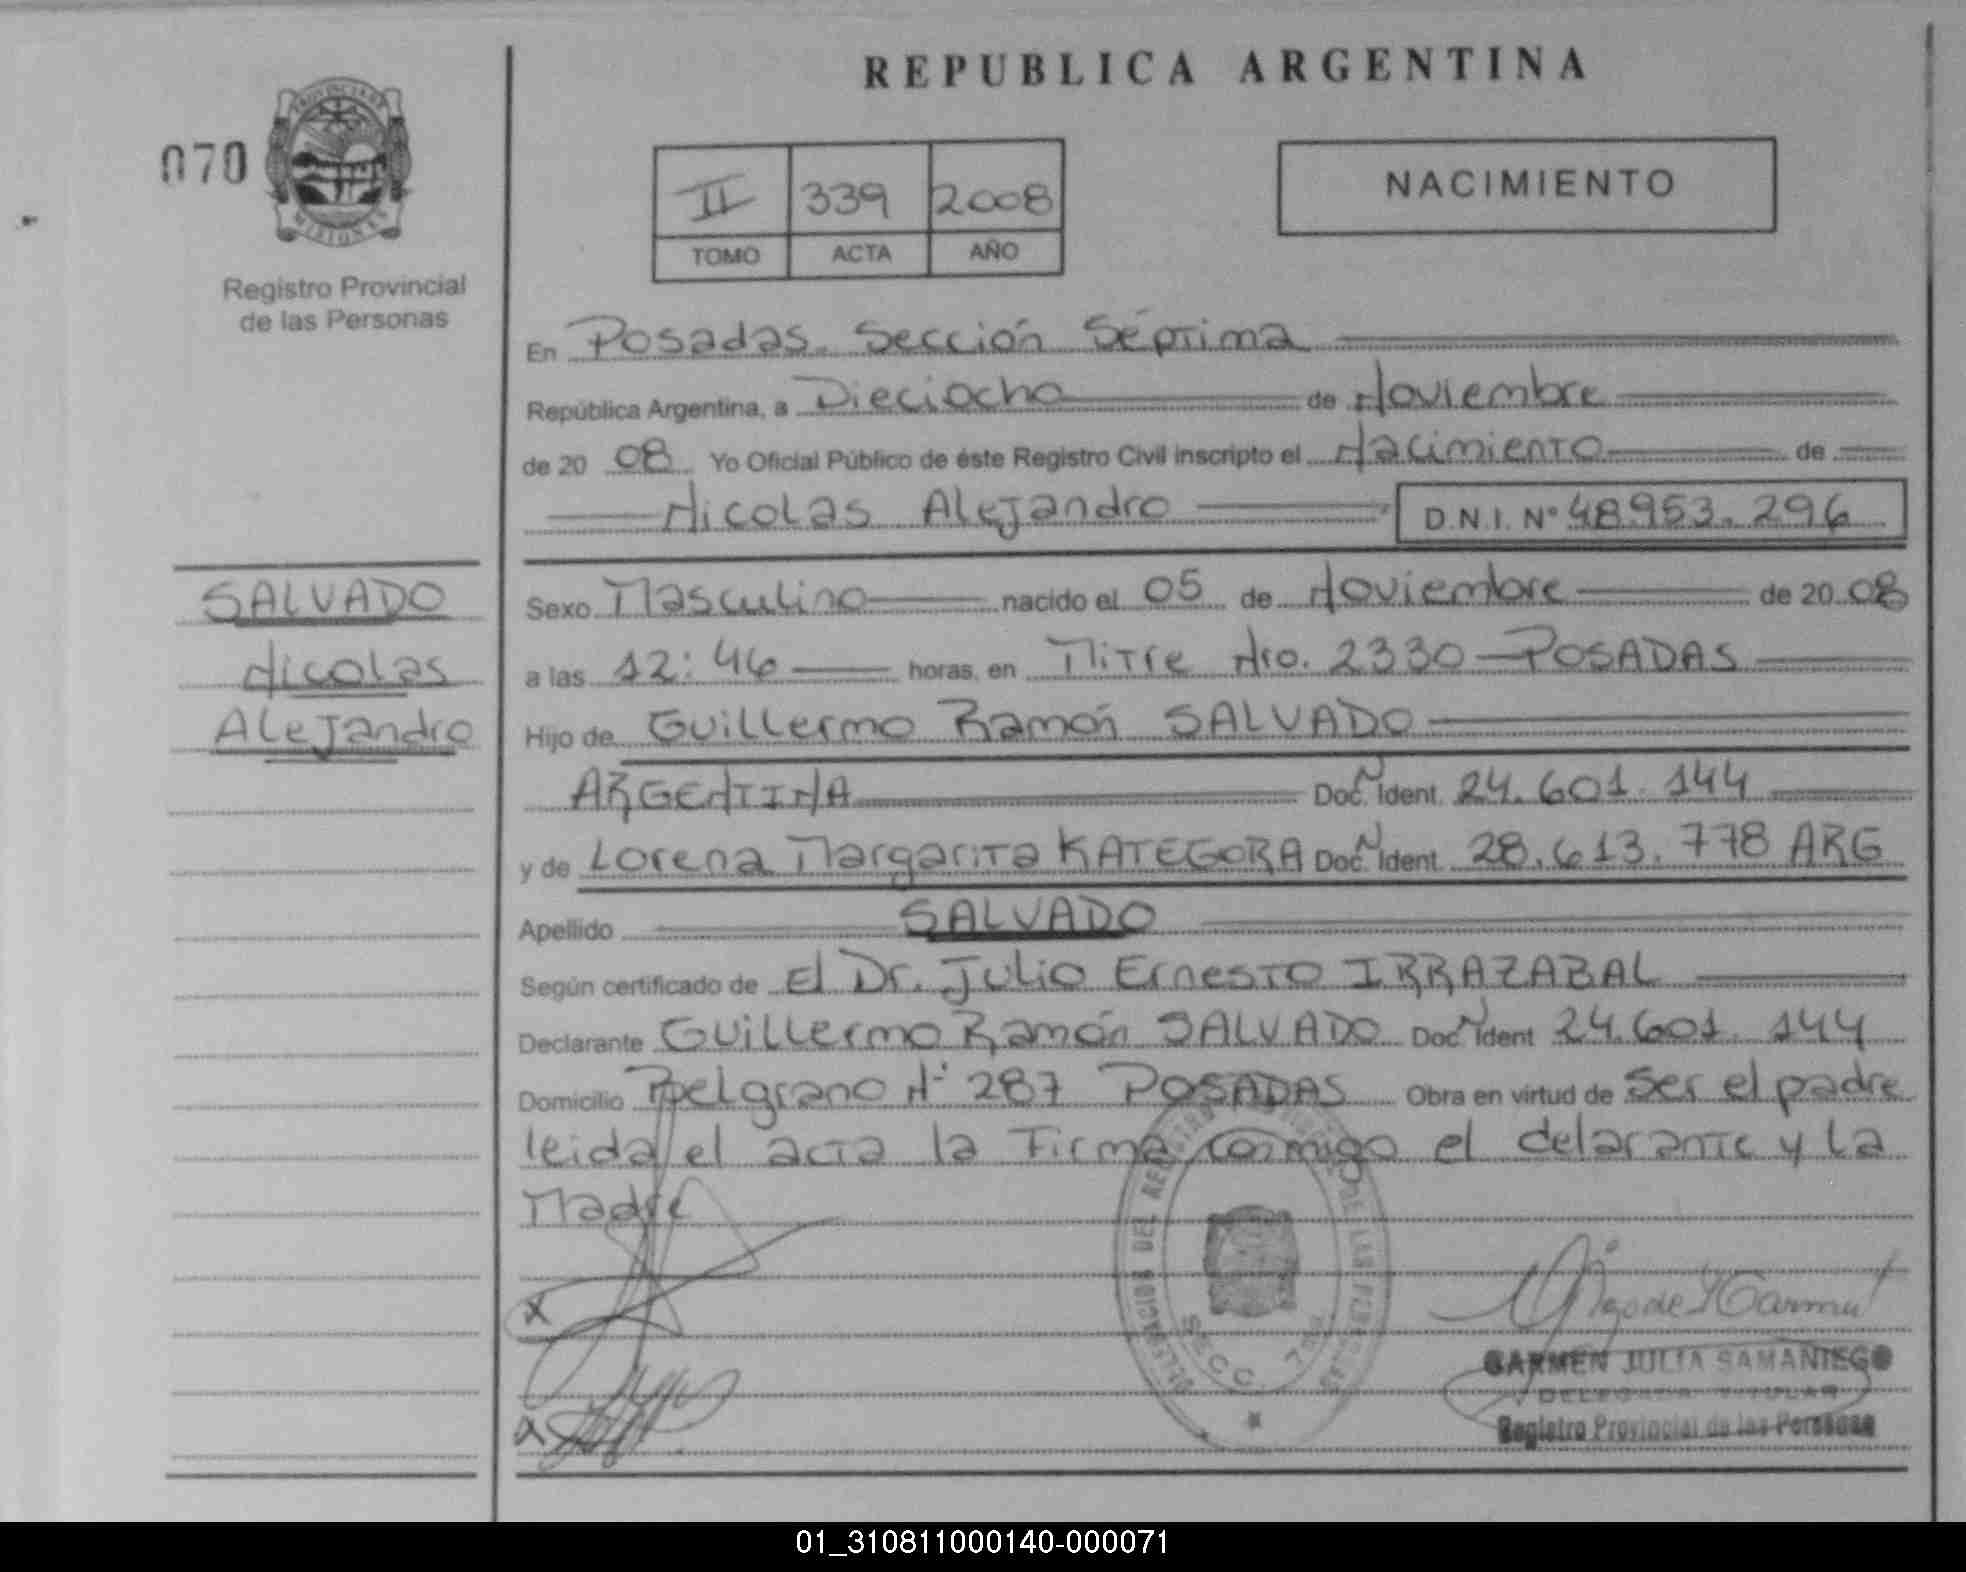 REPUBLICA ARGENTINA
070
PROVINCIA DE
MISIONES
Registro Provincial
de las Personas
II 339 2008
TOMO ACTA AÑO
NACIMIENTO
En Posadas. Sección Séptima
República Argentina, a Dieciocho de Noviembre
de 20 08 Yo Oficial Público de éste Registro Civil inscripto el Nacimiento de
Nicolas Alejandro D.N.I. N° 48.953.296
SALVADO
Nicolas
Alejandro
Sexo Masculino nacido el 05 de Noviembre de 20 08
a las 12:46 horas, en Mitre Nro. 2330 - POSADAS
Hijo de Guillermo Ramón SALVADO
ARGENTINA Doc. N Ident. 24.601.144
y de Lorena Margarita KATEGORA Doc. N Ident. 28.613.778 ARG
Apellido SALVADO
Según certificado de El Dr. Julio Ernesto IRRAZABAL
Declarante Guillermo Ramón SALVADO Doc N Ident 24.601.144
Domicilio Belgrano N° 287 POSADAS Obra en virtud de ser el padre
leida el acta la firma conmigo el delarante y la
Madre
x
x
SECC. 7
CARMEN JULIA SAMANIEGO
DELEGADA TITULAR
Registro Provincial de las Personas
01_310811000140-000071